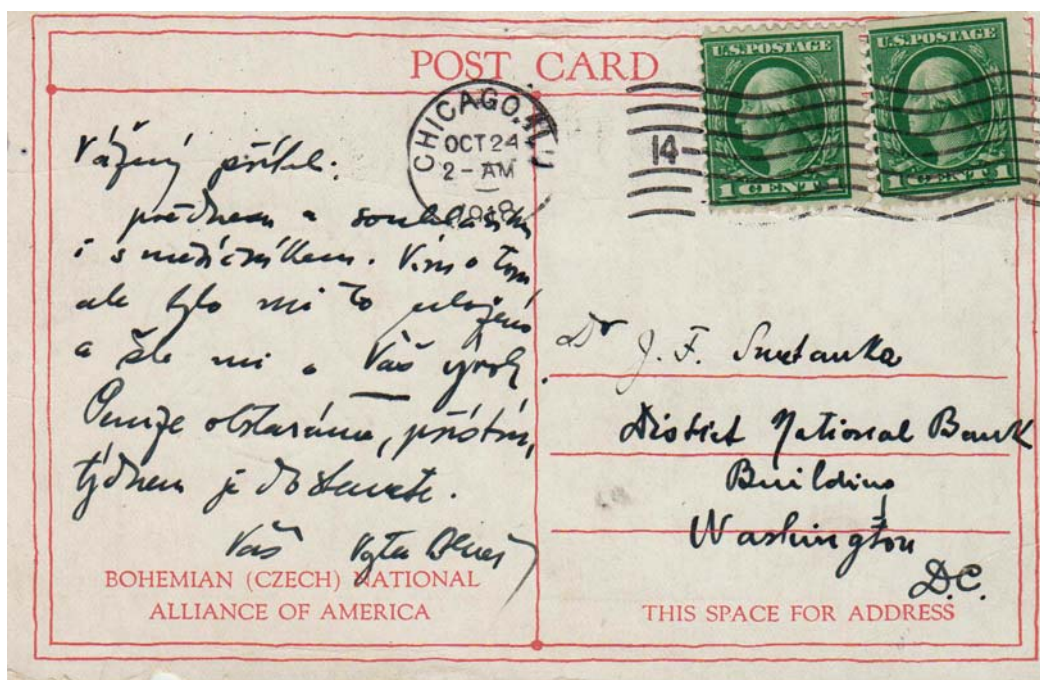 POST CARD
U.S.POSTAGE
U.S.POSTAGE
CHICAGO, ILL
OCT 24
2 - AM
1918
14
1 CENT 1
1 CENT 1
Vážený příteli:
a souhlasím
i s Vím o tom
ale bylo mi to uloženo
a šlo mi o Váš výrok.
Peníze obstaráme, příštím
týdnem je dostanete.
Váš Vojta Beneš
BOHEMIAN (CZECH) NATIONAL
ALLIANCE OF AMERICA
Dr J. F. Smetanka
District National Bank
Building
Washington
D.C.
THIS SPACE FOR ADDRESS